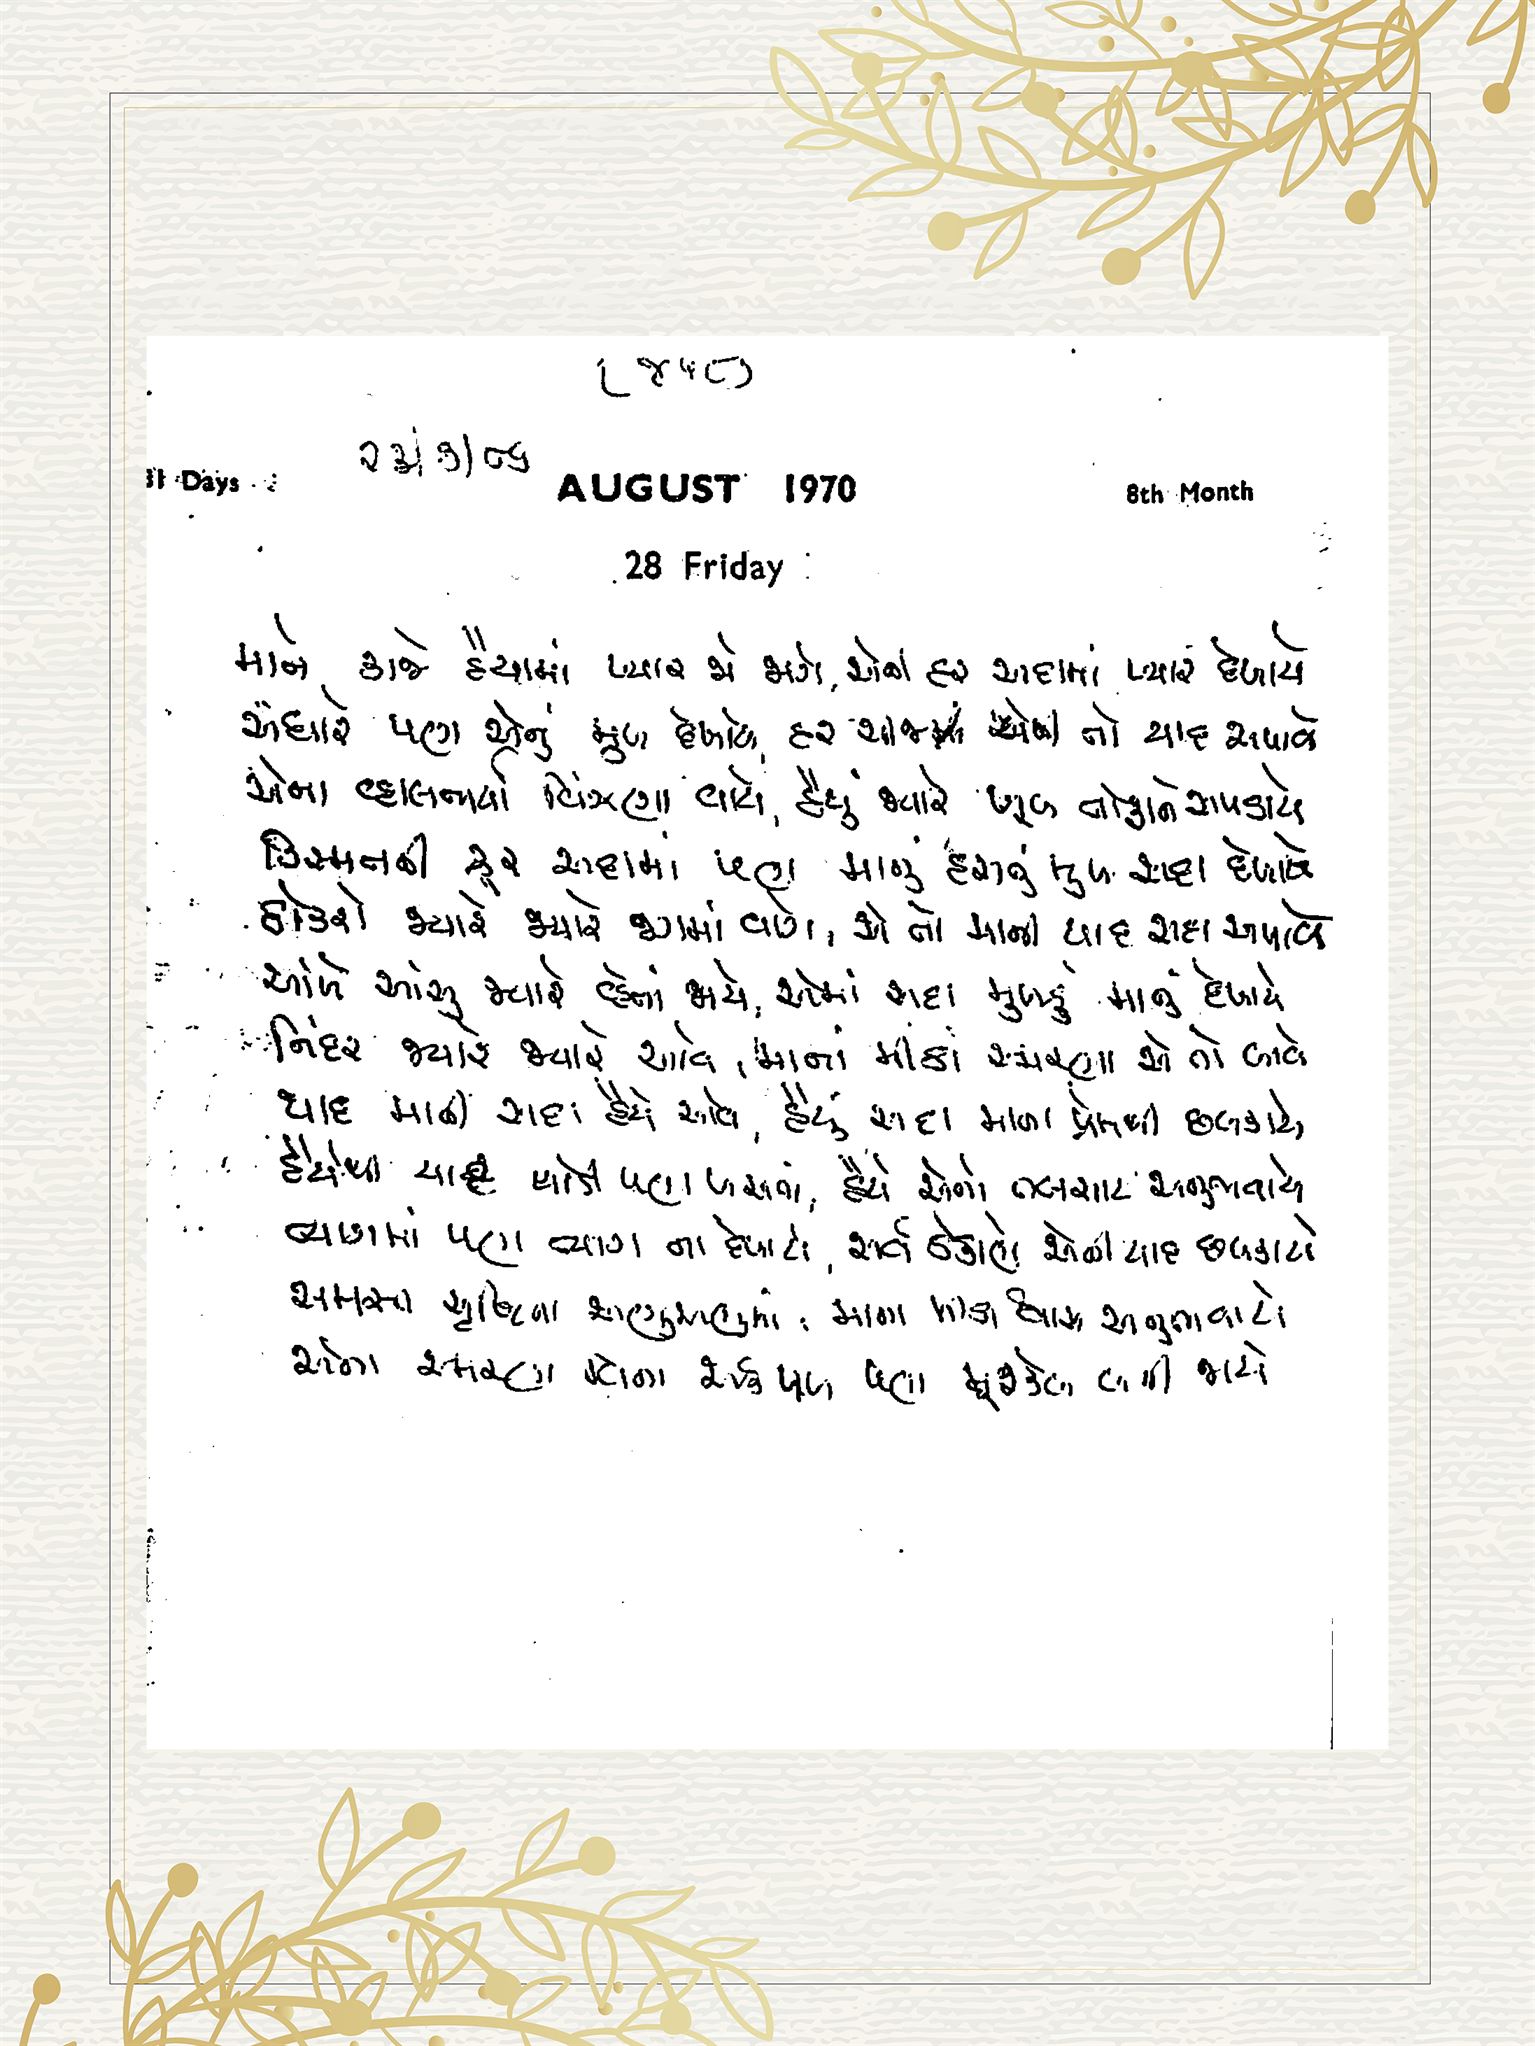 (૪૫૮)
૨૩/૩/૮૬
31 Days AUGUST 1970 8th Month
28 Friday
માને કાજે હૈયામાં પ્યાર જો જાગે, એની હર અદામાં પ્યાર દેખાયે
અંધારે પણ એનું મુખ દેખાયે, હર ચીજ એની તો યાદ અપાવે
એના વ્હાલભર્યા વિંઝણા વાયે, હૈયું જ્યારે ખૂબ તોફાને અફડાયે
કિસ્મતની ક્રૂર અદામાં પણ માનું હસતું મુખ સદા દેખાયે
ઠોકરો જ્યારે જ્યારે જગમાં વાગે, એ તો માની યાદ સદા અપાવે
આંખે આંસુ જ્યારે વ્હેતાં જાયે, એમાં સદા મુખડું માનું દેખાયે
નિંદર જ્યારે જ્યારે આવે, માનાં મીઠાં સ્મરણો એ તો લાવે
યાદ માની સદા હૈયે આવે, હૈયું સદા માના પ્રેમથી છલકાયે
હૈયેથી યાદ થોડી પણ ખસતાં, હૈયે એનો તલસાટ અનુભવાયે
વ્યાજમાં પણ વ્યાજ ના દેખાયે, સર્વ ઠેકાણે એની યાદ છલકાયે
સમસ્ત સૃષ્ટિના અણુઅણુમાં, માના મીઠા શ્વાસ અનુભવાયે
એના સ્મરણ વિના એક પળ પણ મુશ્કેલ બની જાયે